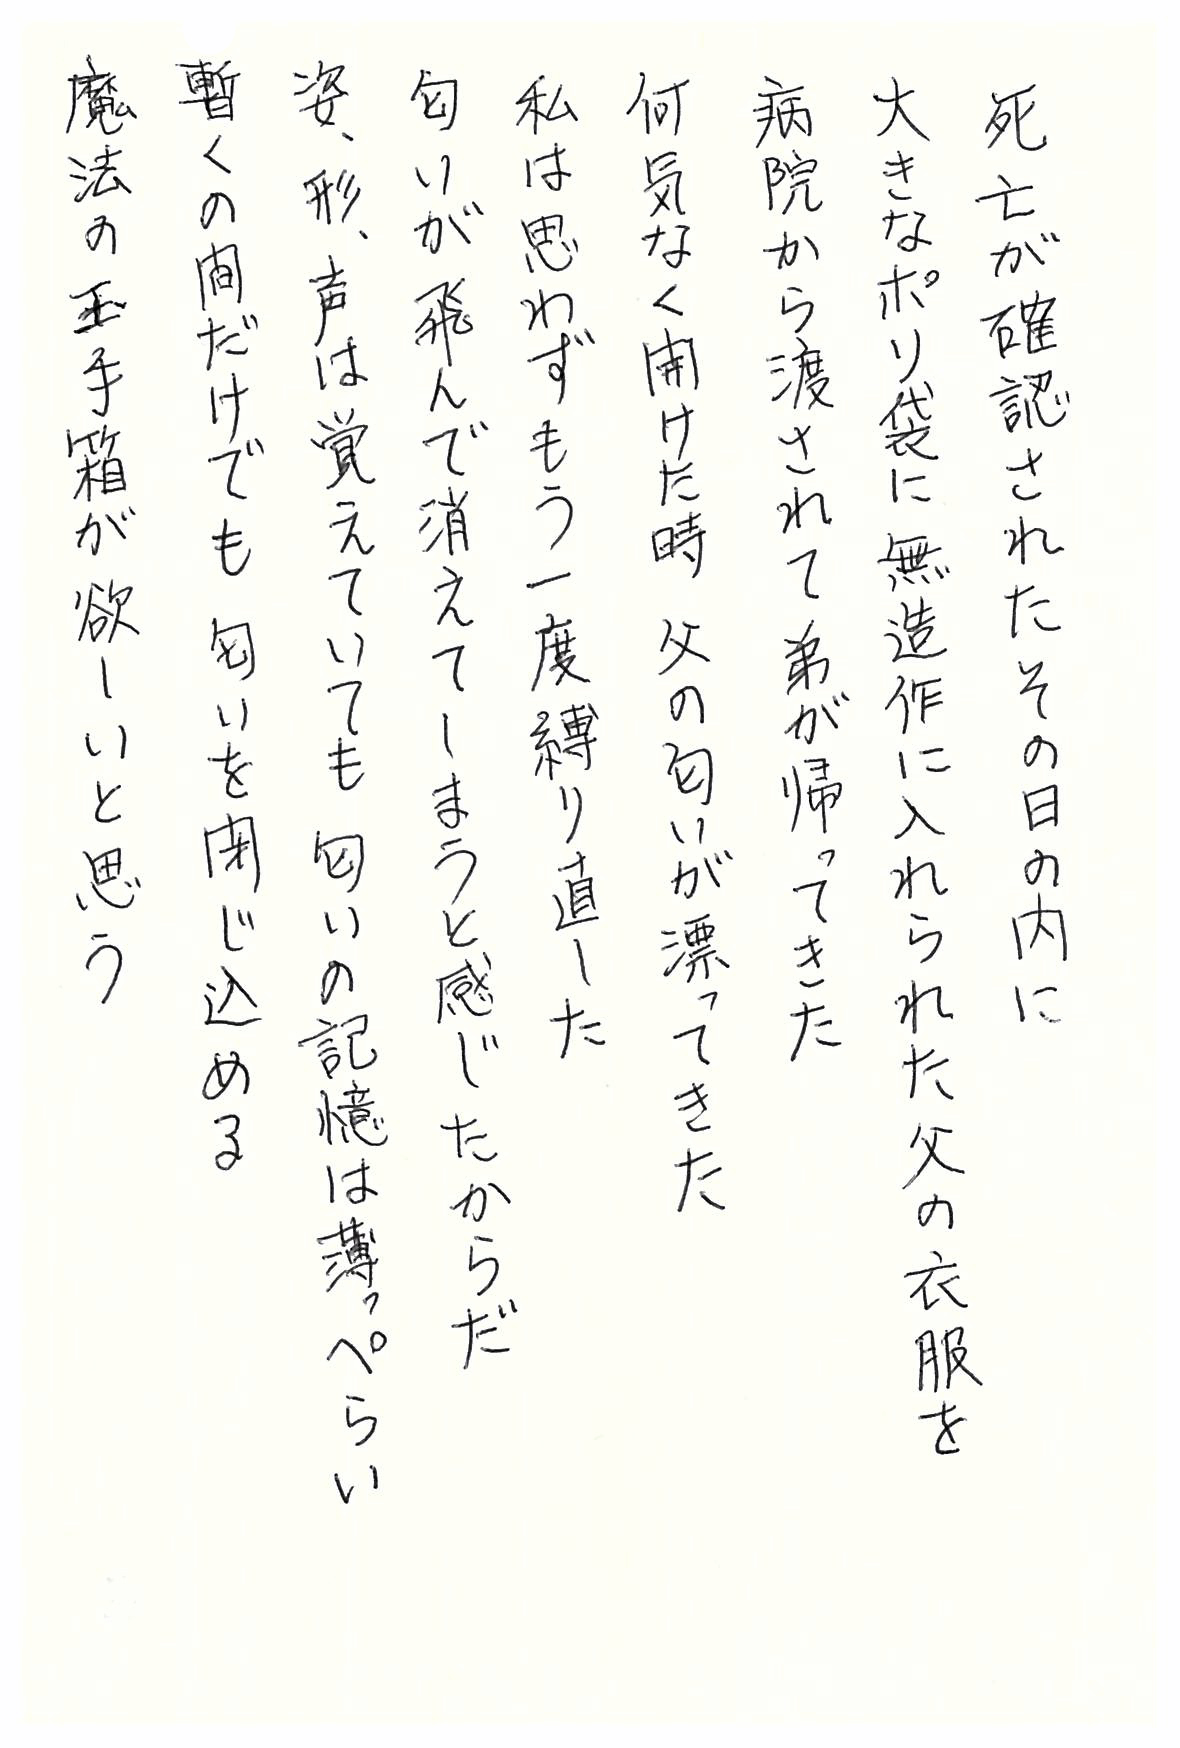 死亡が確認されたその日の内に
大きなポリ袋に無造作に入れられた父の衣服を
病院から渡されて弟が帰ってきた
何気なく開けた時 父の匂いが漂ってきた
私は思わずもう一度縛り直した
匂いが飛んで消えてしまうと感じたからだ
姿、形、声は覚えていても 匂いの記憶は薄っぺらい
暫くの間だけでも 匂いを閉じ込める
魔法の玉手箱が欲しいと思う